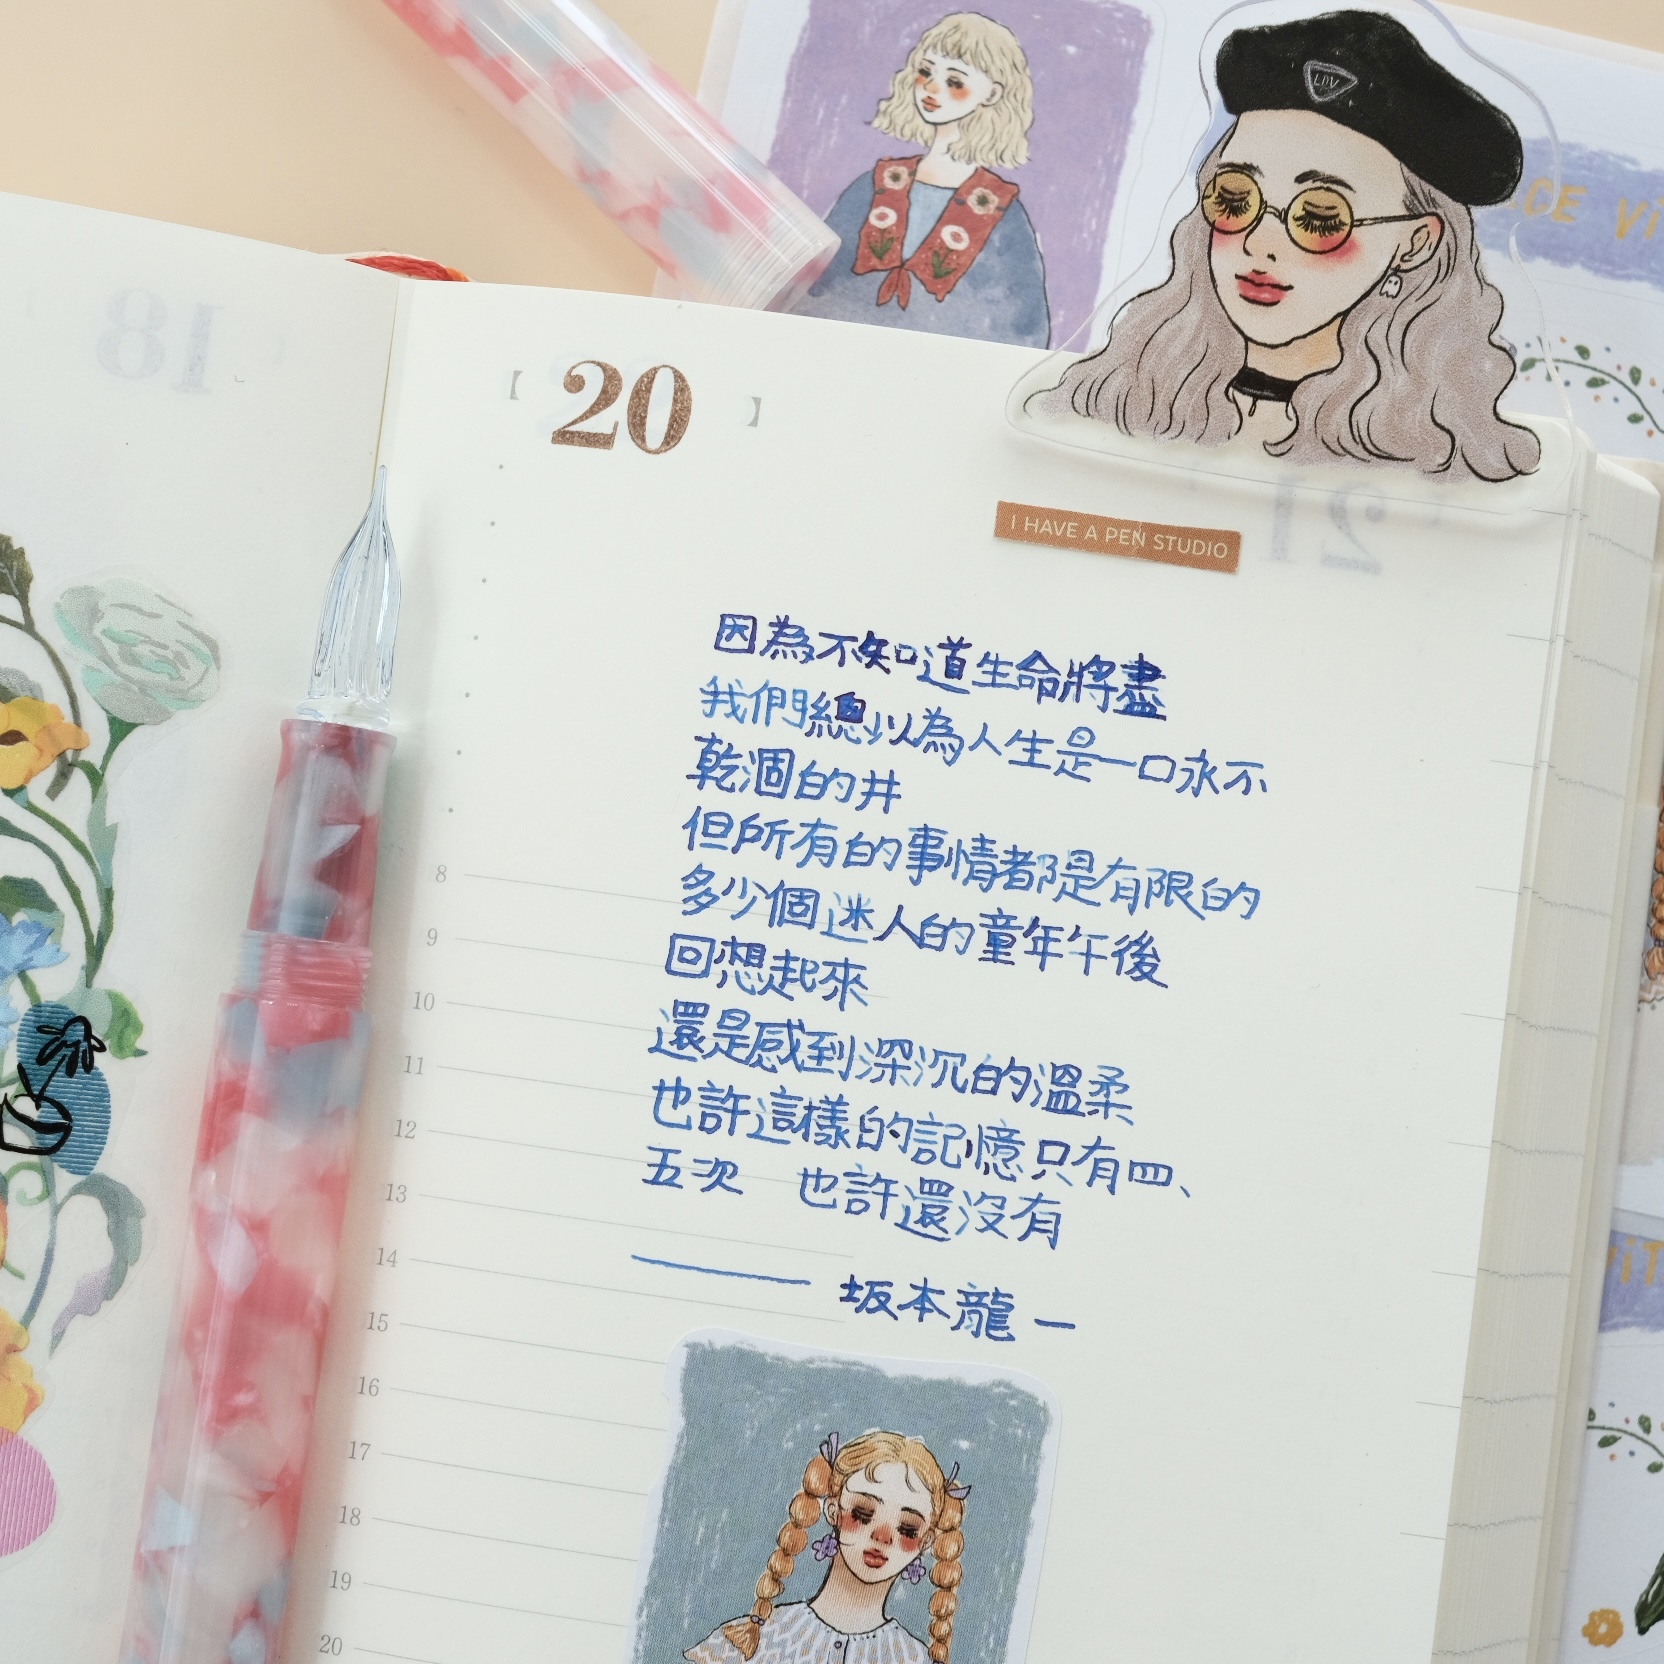 18
【 20 】
LDV
21
I HAVE A PEN STUDIO
因為不知道生命將盡
我們總以為人生是一口永不
乾涸的井
但所有的事情都是有限的
多少個迷人的童年午後
回想起來
還是感到深沉的溫柔
也許這樣的記憶只有四、
五次 也許還沒有
—— 坂本龍一
8
9
10
11
12
13
14
15
16
17
18
19
20